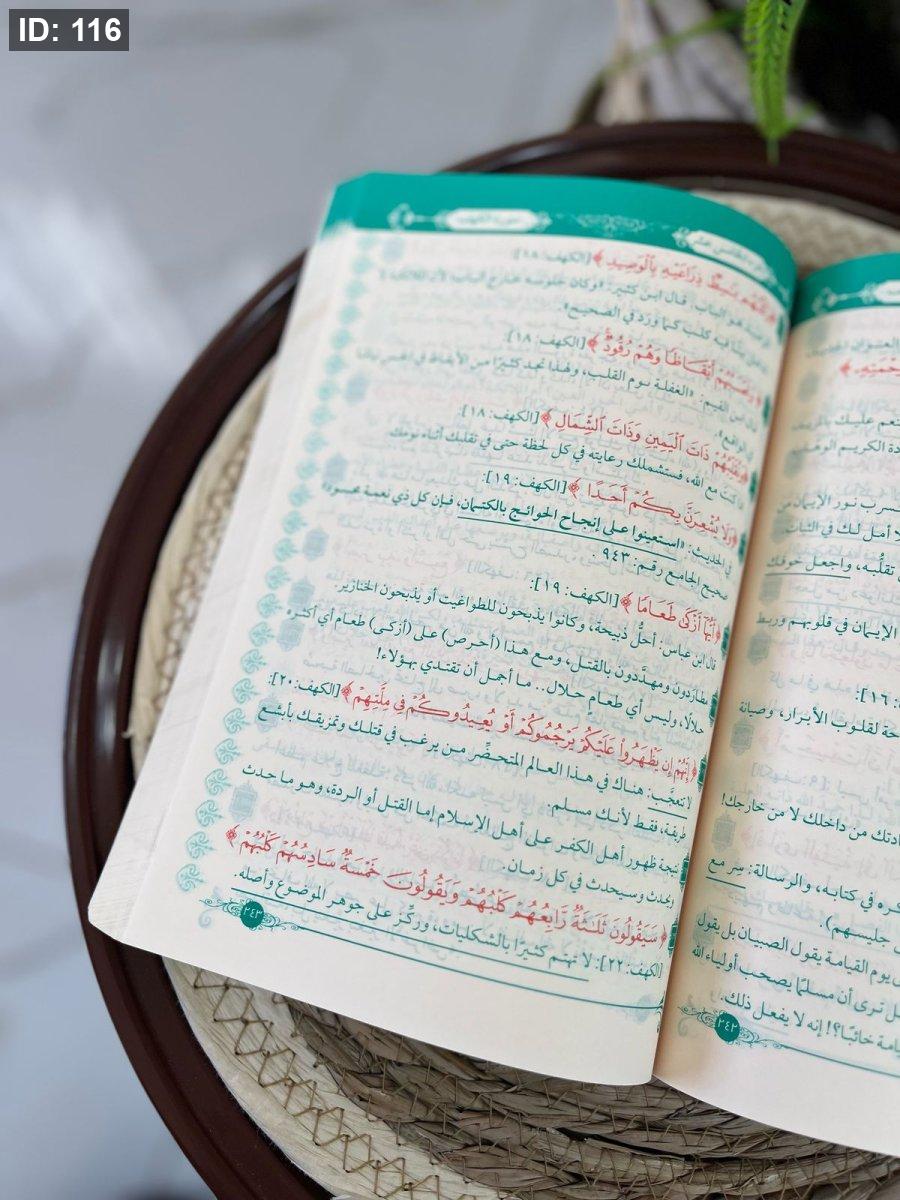 ID: 116
سورة الكهف
الخامس عشر
بَاسِطٌ ذِرَاعَيْهِ بِالْوَصِيدِ ﴾ [الكهف: ١٨]:
هو الباب. قال ابن كثير: «وكان جلوسه خارج الباب؛ لأن الملائكة لا
بيتًا فيه كلب كما ورد في الصحيح».
أَيْقَاظًا وَهُمْ رُقُودٌ ﴾ [الكهف: ١٨]:
ابن القيم: «الغفلة نوم القلب، ولهذا تجد كثيرًا من الأيقاظ في الحس نيامًا
في الواقع».
﴿ وَنُقَلِّبُهُمْ ذَاتَ الْيَمِينِ وَذَاتَ الشِّمَالِ ﴾ [الكهف: ١٨]:
كنت مع الله، فستشملك رعايته في كل لحظة حتى في تقلبك أثناء نومك.
﴿ وَلَا يُشْعِرَنَّ بِكُمْ أَحَدًا ﴾ [الكهف: ١٩]:
في الحديث: «استعينوا على إنجاح الحوائج بالكتمان، فإن كل ذي نعمة محسود»
صحيح الجامع رقم: ٩٤٣.
﴿ أَيُّهَا أَزْكَى طَعَامًا ﴾ [الكهف: ١٩]:
قال ابن عباس: أحلُّ ذبيحة، وكانوا يذبحون للطواغيت أو يذبحون الخنازير.
مطاردون ومهدَّدون بالقتل، ومع هذا (أحرص) على (أزكى) طعام أي أكثره
حلالًا، وليس أي طعام حلال.. ما أجمل أن تقتدي بهؤلاء!
﴿ إِنَّهُمْ إِن يَظْهَرُوا عَلَيْكُمْ يَرْجُمُوكُمْ أَوْ يُعِيدُوكُمْ فِي مِلَّتِهِمْ ﴾ [الكهف: ٢٠]:
لا تتعجَّب: هناك في هذا العالم المتحضِّر من يرغب في قتلك وتمزيقك بأبشع
طريقة، فقط لأنك مسلم.
نتيجة ظهور أهل الكفر على أهل الإسلام إما القتل أو الردة، وهو ما حدث
ويحدث وسيحدث في كل زمان.
﴿ سَيَقُولُونَ ثَلَاثَةٌ رَّابِعُهُمْ كَلْبُهُمْ وَيَقُولُونَ خَمْسَةٌ سَادِسُهُمْ كَلْبُهُمْ ﴾
[الكهف: ٢٢]: لا تهتم كثيرًا بالشكليات، وركِّز على جوهر الموضوع وأصله.
٢٤٣
دة الكريم
نور الإيمان من
لا أمل لك في الثبات
تقلُّبه، واجعل خوفك
الإيمان في قلوبهم وربط
١٦]:
لقلوب الأبرار، وصيانة
من داخلك لا من خارجك!
في كتابه، والرسالة: سِر مع
جليسهم).
يوم القيامة يقول الصبيان بل يقول
ترى أن مسلمًا يصحب أولياء الله
خائبًا؟! إنه لا يفعل ذلك.
٢٤٢